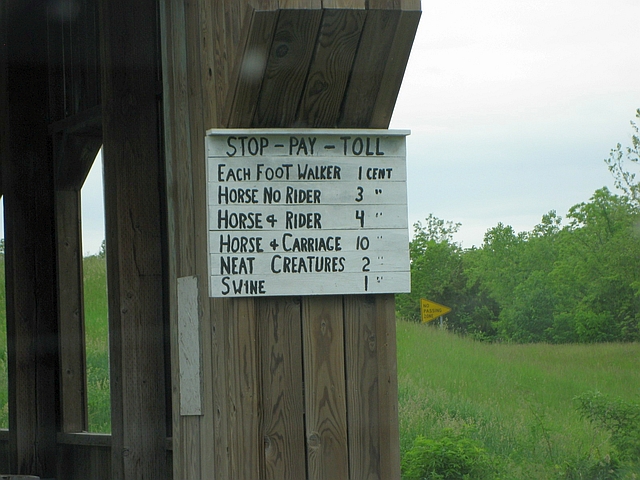 STOP - PAY - TOLL
EACH FOOT WALKER 1 CENT
HORSE NO RIDER 3 "
HORSE & RIDER 4 "
HORSE & CARRIAGE 10 "
NEAT CREATURES 2 "
SWINE 1 "
NO
PASSING
ZONE